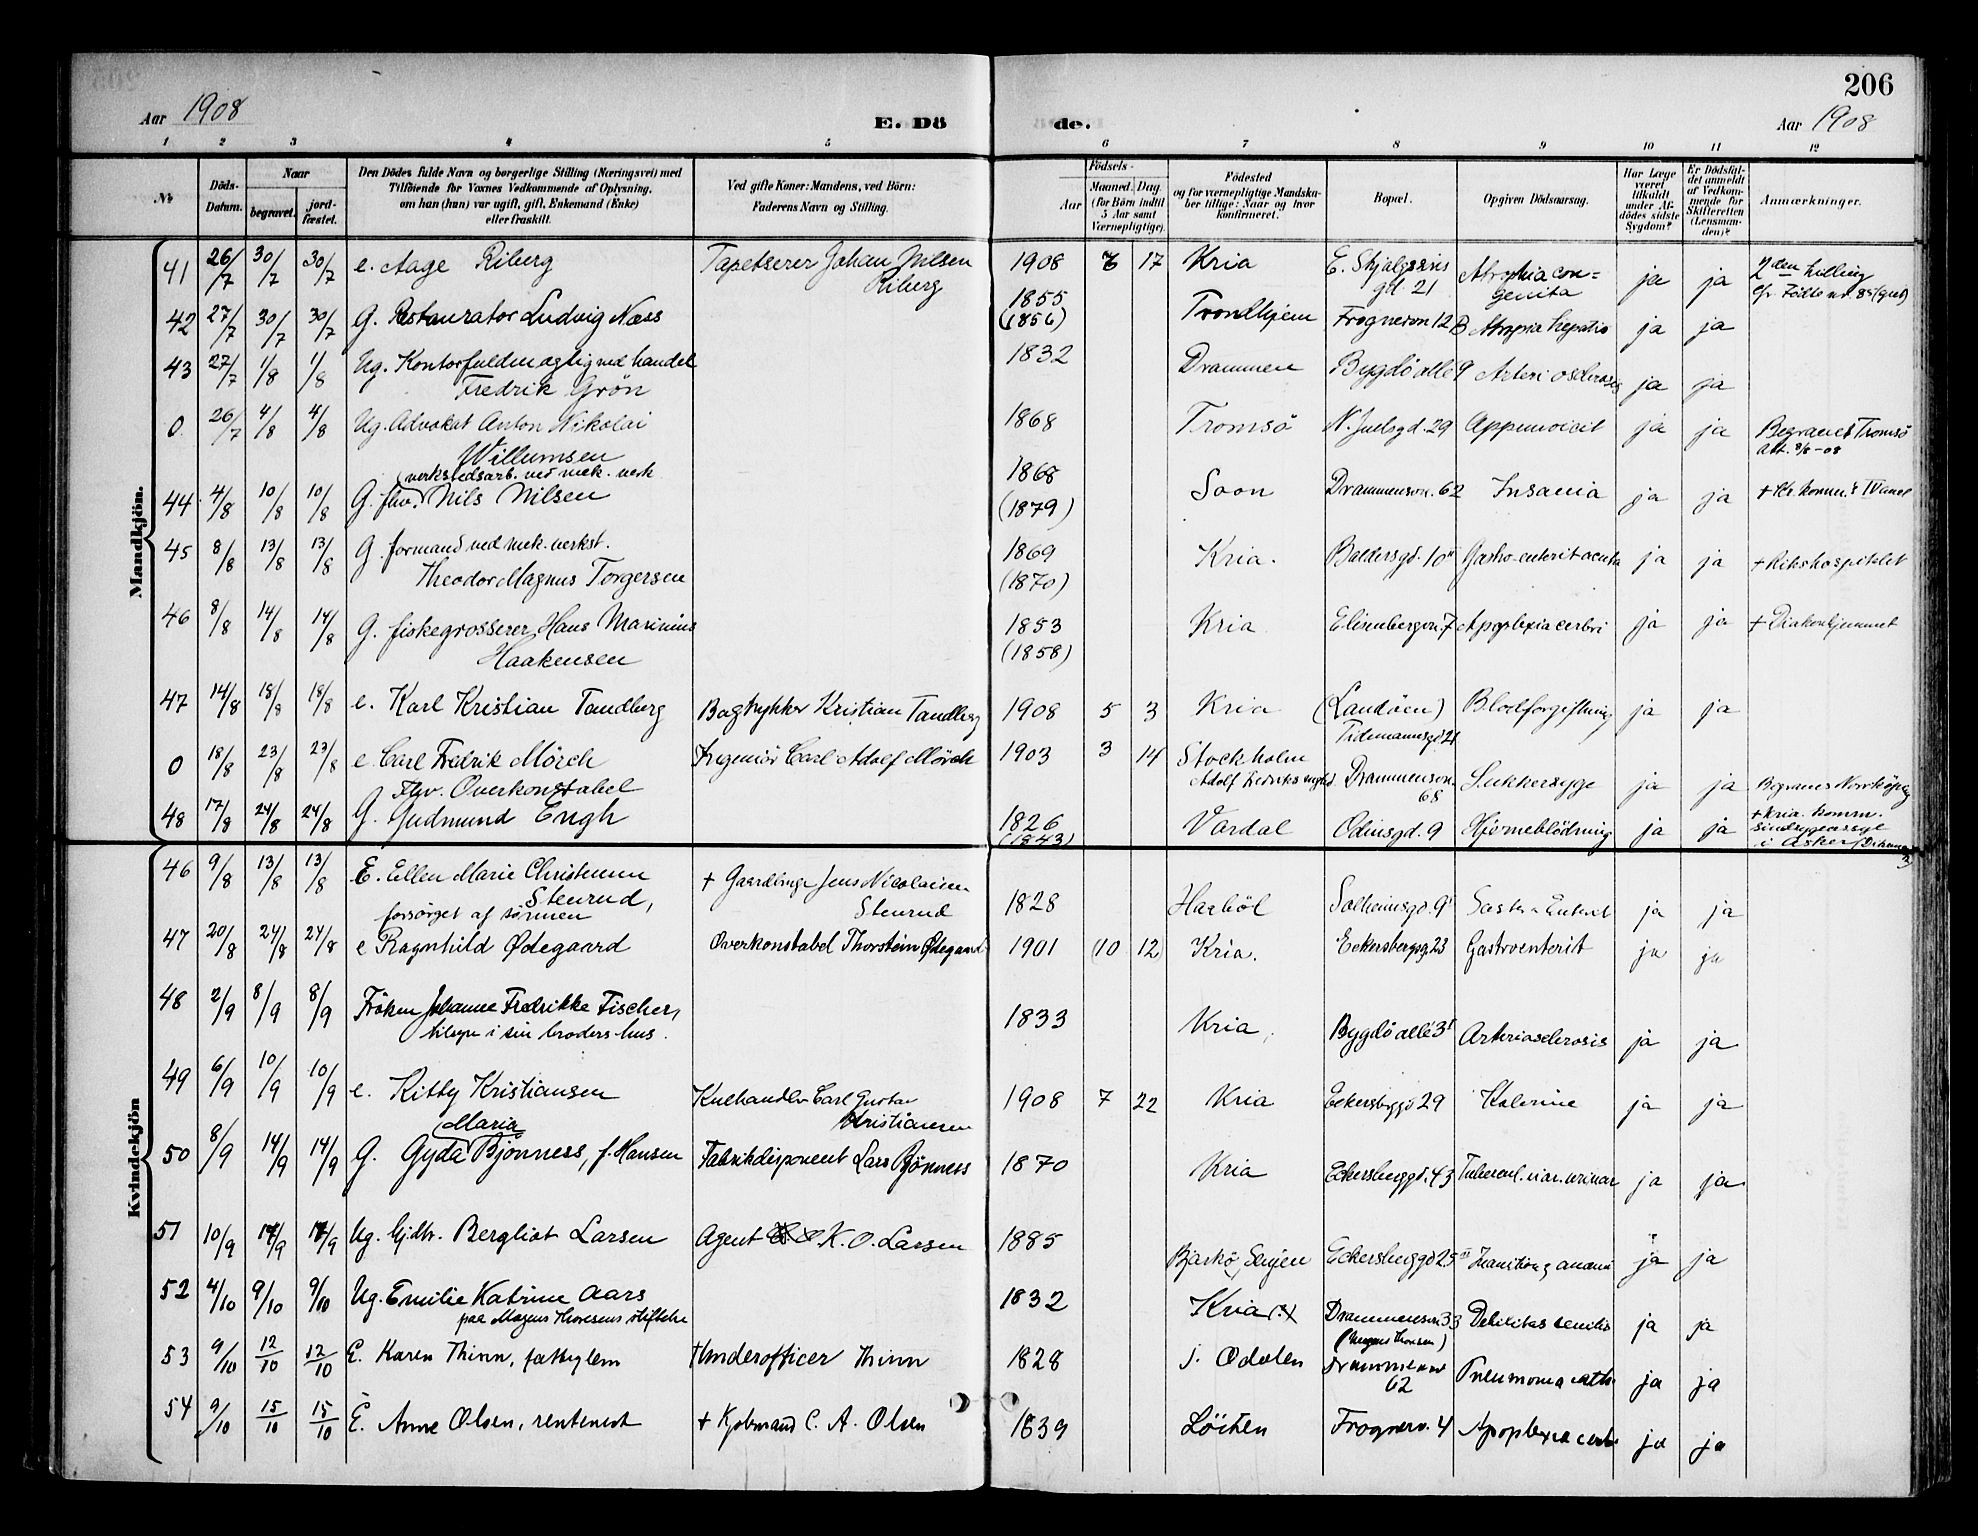 206
Aar 1908
E. Dö
de.
Aar 1908
1 2 3 4 5 6 7 8 9 10 11 12
№
Döds-
Datum.
Naar
begravet.
jord-
fæstet.
Den Dödes fulde Navn og borgerlige Stilling (Næringsvei) med
Tilföiende for Voxnes Vedkommende af Oplysning,
om han (hun) var ugift, gift, Enkemand (Enke)
eller fraskilt.
Ved gifte Koner: Mandens, ved Börn:
Faderens Navn og Stilling.
Födsels-
Aar
Maaned. Dag.
(for Börn indtil
5 Aar samt
Værnepligtige).
Födested
og for værnepligtige Mandska-
ber tillige: Naar og hvor
konfirmeret.
Bopæl.
Opgiven Dödsaarsag.
Har Læge
været
tilkaldt
under Af-
dödes sidste
Sygdom?
Er Dödsfal-
det anmeldt
af Vedkom-
mende for
Skifteretten
(Lensman-
den)?
Anmærkninger.
Mandkjön.
41 26/7 30/7 30/7 e. Aage Riberg Tapetserer Johan Nilsen 1908 17 Kria E. Skjalgssøns Atrophia con= ja ja 2den tvilling
Riberg gd. 21 genita
1855
42 27/7 30/7 30/7 G. Restaurator Ludvig Næss (1856) Trondhjem Frognervn 12 B hepatis ja ja
43 27/7 1/8 1/8 Ug. Kontorfuldmægtig ved handel 1832 Drammen Bygdö alle 9 ja ja
Fredrik Grön
0 26/7 4/8 4/8 Ug. Advokat Anton Nikolai 1868 Tromsö N. Juelsgd. 29 ja ja Begravet Tromsö
Willumsen
verkstedsarb. ved mek. verk 1868
44 4/8 10/8 10/8 G. fhv. Nils Nilsen (1879) Soon Drammensvn. 62 Insania ja ja
45 8/8 13/8 13/8 G. formand ved mek. verkst. 1869 Kria. Baldersgd. 10 Gastro-enterit acuta ja ja + Rikshospitalet
Theodor Magnus Torgersen (1870)
46 8/8 14/8 14/8 G. fiskegrosserer Hans Marinius 1853 Kria Elisenbergvn. 7 Apoplexia cerbri ja ja + Diakonhjemmet
Haakensen (1858)
47 14/8 18/8 18/8 e. Karl Kristian Tandberg Bogtrykker Kristian Tandberg 1908 5 3 Kria (Landöen) Blodforgiftning ja ja
Tidemannsgd 21
0 18/8 23/8 23/8 e. Carl Fredrik Mörch Ingeniör Carl Adolf Mörch 1903 3 14 Stockholm Drammensvn. 68 Sukkersyge ja ja Begraves Norrköping
Adolf Fredriks
Fhv. Overkonstabel
48 17/8 24/8 24/8 G. Gudmund Engh 1826 Vardal Odinsgd. 9 Hjerneblödning ja ja + Kria. komm.
(1843) sindssygeasyl
i Asker
Kvindekjön
46 9/8 13/8 13/8 E. Ellen Marie + Gaardbruger Jens Nicolaisen 1828 Solheimsgd. 9 ja ja
Stenrud, Stenrud
forsörget af sönnen
47 20/8 24/8 24/8 e Ragnhild Ødegaard Overkonstabel Thorstein Ødegaard 1901 (10 12) Kria. Eckersbergsg. 23 Gastroenterit ja ja
48 2/9 8/9 8/9 Fröken Johanne Fredrikke Fischer, 1833 Kria, Bygdö alle 3 Arteriosclerosis ja ja
i sin broders hus.
49 6/9 10/9 10/9 e. Kitty Kristiansen Kulhandler Carl Gustav 1908 7 22 Kria 29 Kolerine ja ja
Kristiansen
Maria
50 8/9 14/9 14/9 G. Gyda Bjönness, f. Hansen Fabrikdisponent Lars Bjönness 1870 Kria Eckersberggd. 43 ja ja
51 10/9 17/9 17/9 Ug. Gjdtr. Bergliot Larsen Agent K. O. Larsen 1885 Bjarkö, Senjen Eckersberggd 25 ja ja
52 4/10 9/10 9/10 Ug. Emilie Katrine Aars 1832 Kria Drammensvn 33 Debilitas senilis ja ja
paa Mogens Thoresens stiftelse (Mogens Thoresen)
53 9/10 12/10 12/10 E. Karen Thinn, fattiglem + Underofficer Thinn 1828 S. Odalen Drammensvn 62 Pneumonia ja ja
54 9/10 15/10 15/10 E. Anne Olsen, rentenist + Kjöbmand C. A. Olsen 1839 Löiten Frognerv. 4 Apoplexia cerebri ja ja